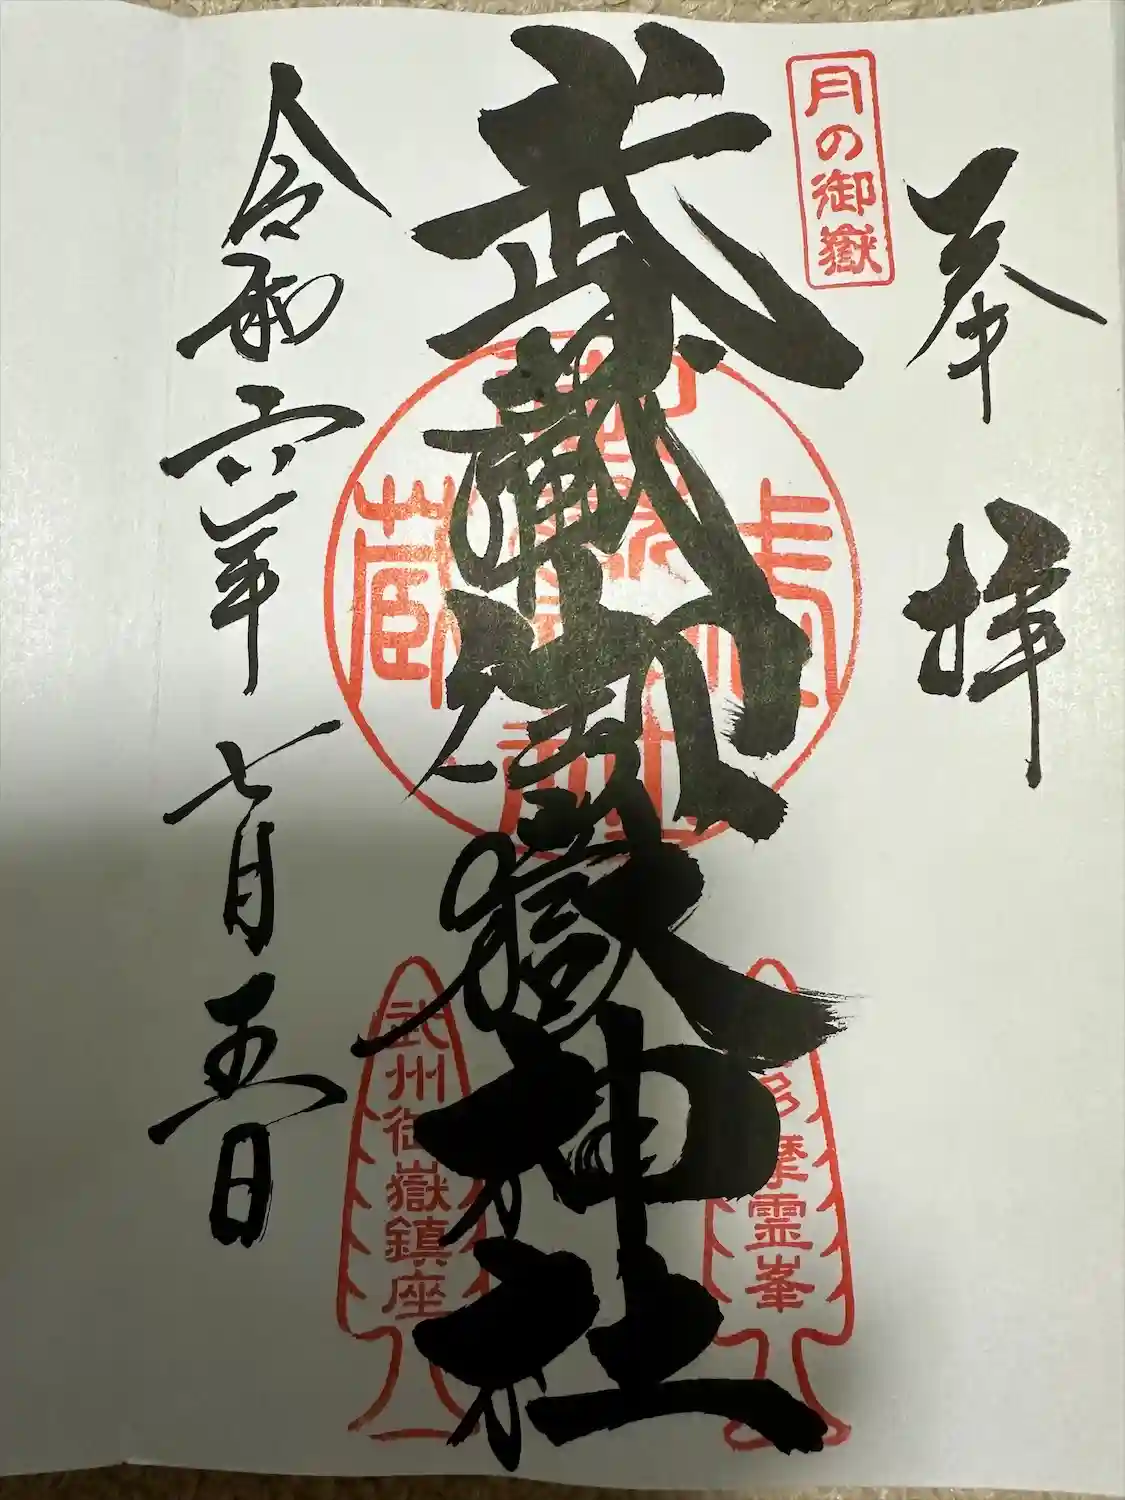 奉拝
月の御嶽
武蔵御嶽神社
多摩霊峯
武州御嶽鎮座
令和六年七月五日